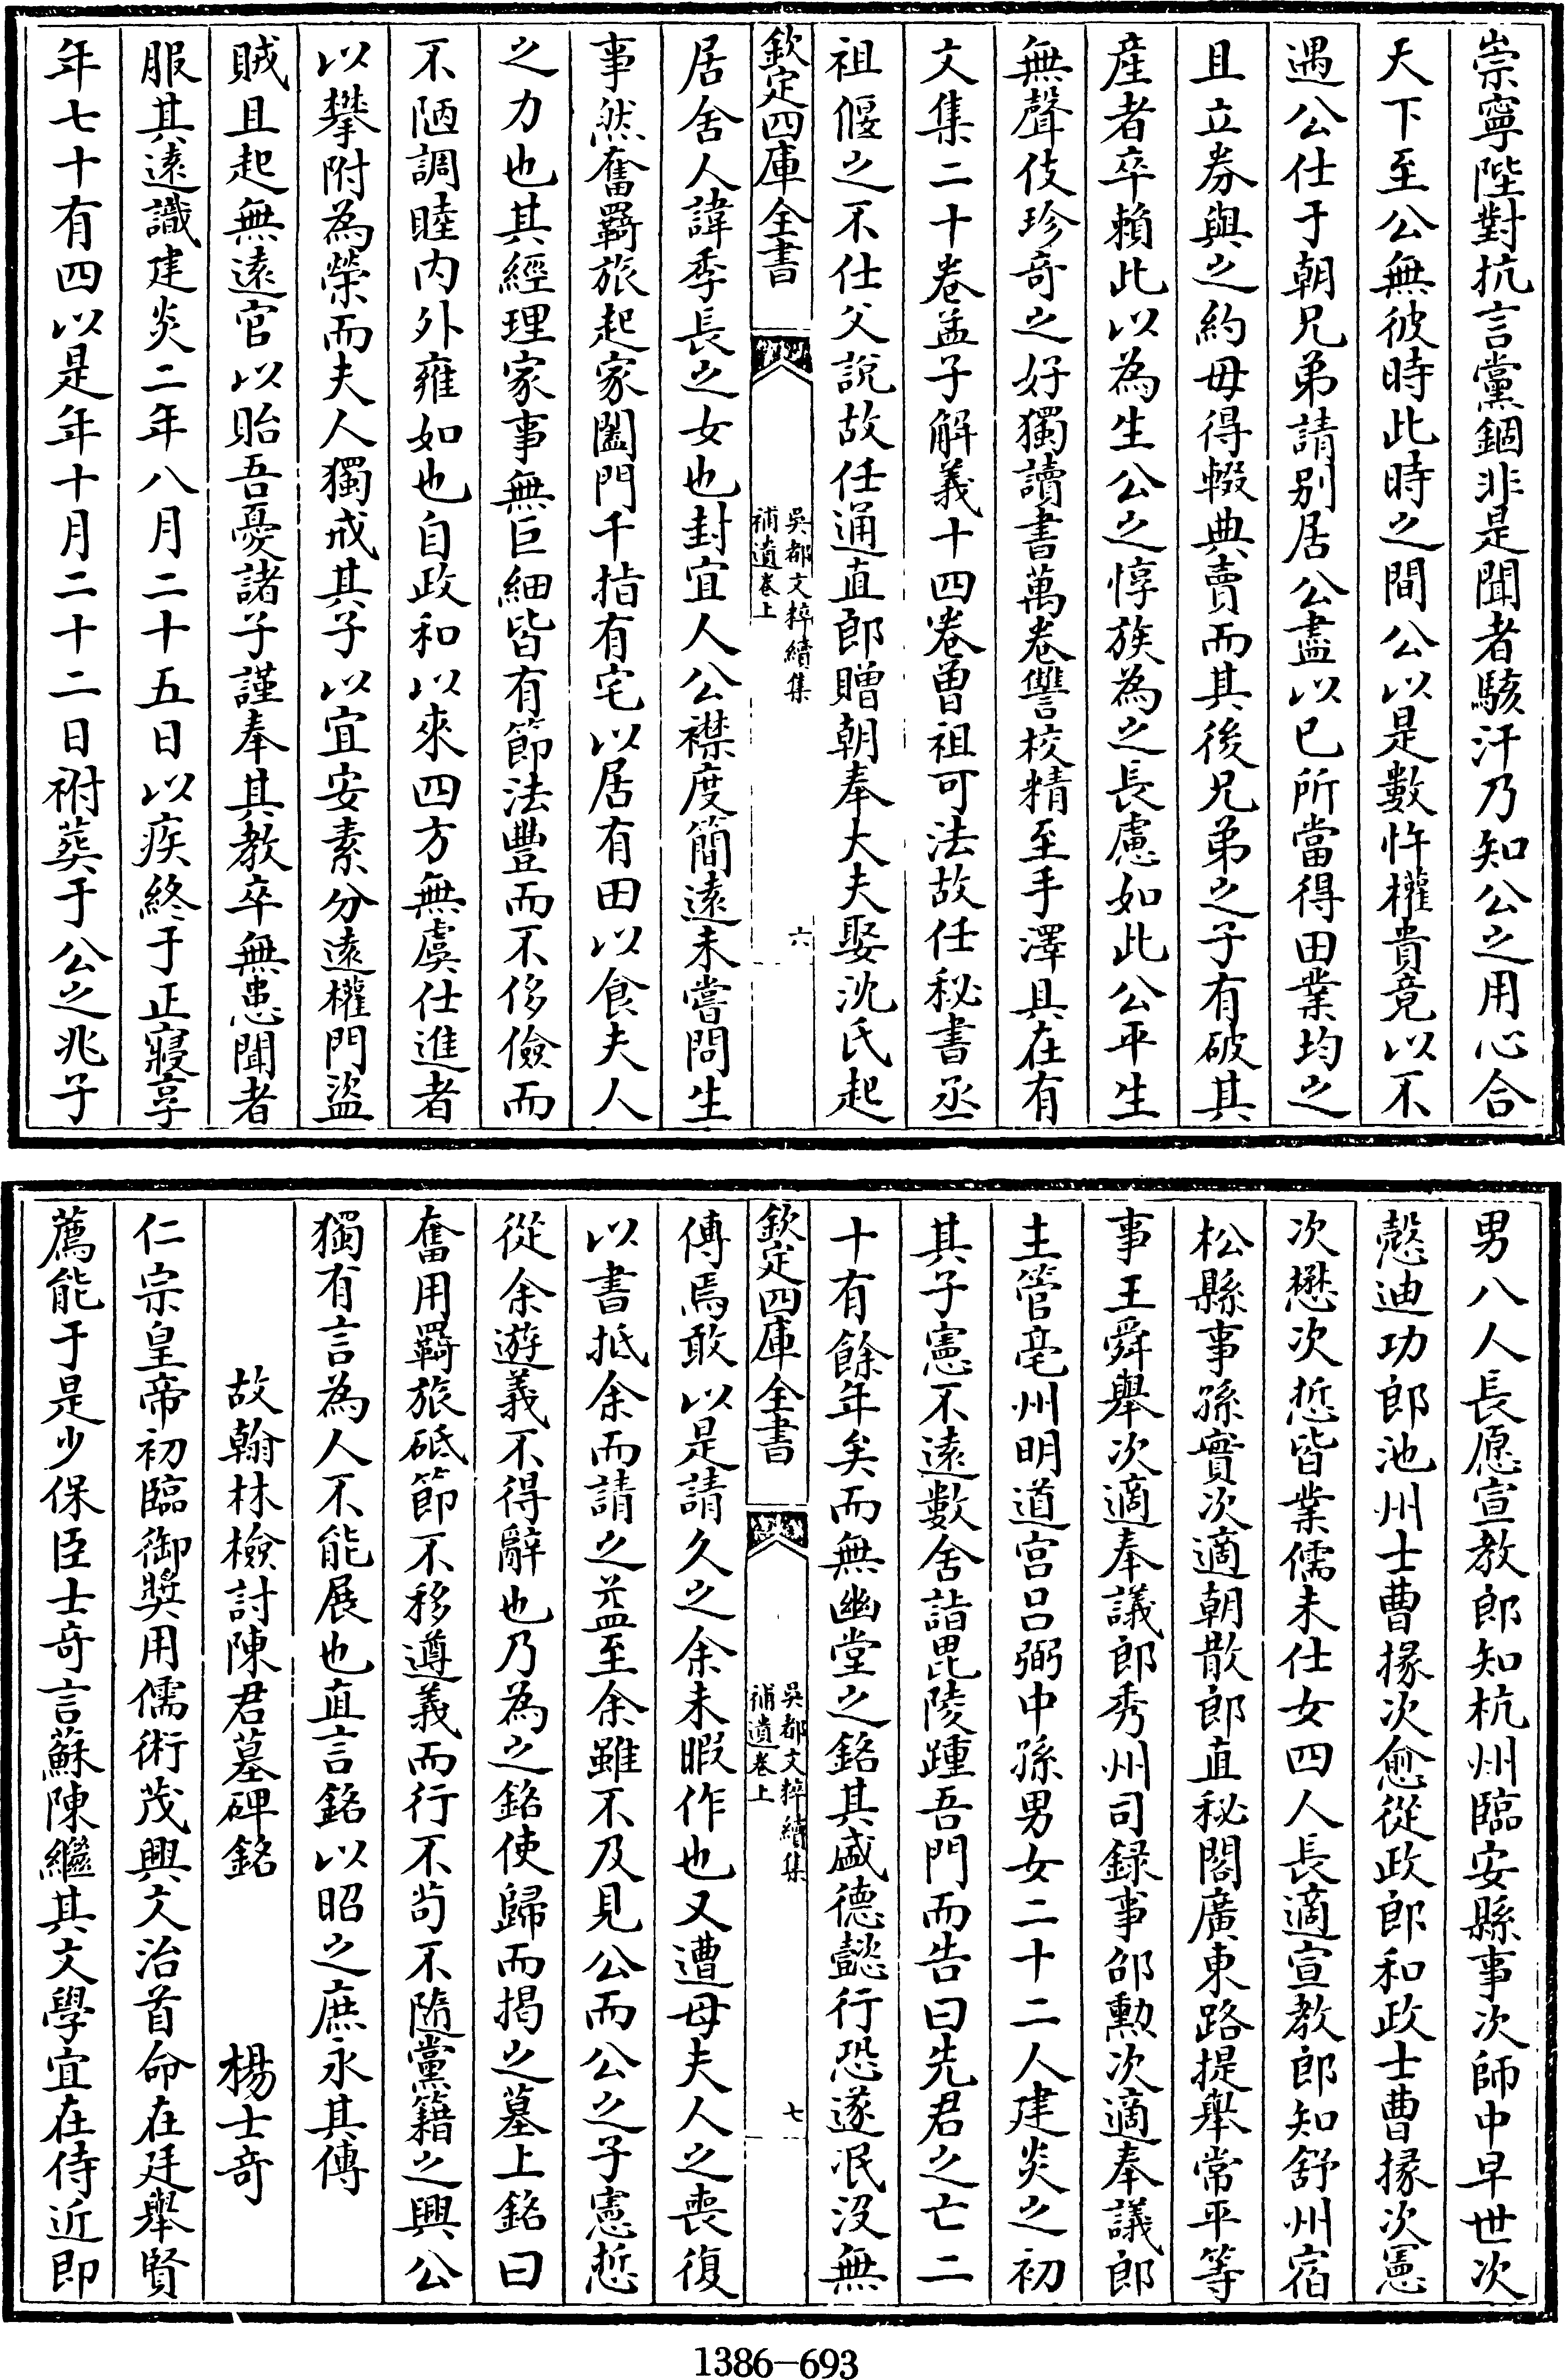 崇寧陛對抗言黨錮非是聞者駭汗乃知公之用心合
天下至公無彼時此時之間公以是數忤權貴竟以不
遇公仕于朝兄弟請别居公盡以已所當得田業均之
且立券與之約毋得輟典賣而其後兄弟之子有破其
產者卒賴此以為生公之惇族為之長慮如此公平生
無聲伎珍奇之好獨讀書萬卷讐校精至手澤具在有
文集二十卷孟子解義十四卷曾祖可法故任秘書丞
祖偃之不仕父說故任通直郎贈朝奉大夫娶沈氏起
欽定四庫全書
吳都文粹續集
補遺卷上
六
居舍人諱季長之女也封宜人公襟度簡遠未嘗問生
事然奮羇旅起家闔門千指有宅以居有田以食夫人
之力也其經理家事無巨細皆有節法豐而不侈儉而
不陋調睦内外雍如也自政和以來四方無虞仕進者
以攀附為榮而夫人獨戒其子以宜安素分遠權門盜
賊且起無遠官以貽吾憂諸子謹奉其教卒無患聞者
服其遠識建炎二年八月二十五日以疾終于正寢享
年七十有四以是年十月二十二日祔葬于公之兆子
男八人長愿宣教郎知杭州臨安縣事次師中早世次
慤迪功郎池州士曹掾次愈從政郎和政士曹掾次憲
次懋次悊皆業儒未仕女四人長適宣教郎知舒州宿
松縣事孫實次適朝散郎直秘閣廣東路提舉常平等
事王舜舉次適奉議郎秀州司録事邵勲次適奉議郎
主管亳州明道宫吕弼中孫男女二十二人建炎之初
其子憲不遠數舍詣毘陵踵吾門而告曰先君之亡二
十有餘年矣而無幽堂之銘其盛德懿行恐遂泯没無
欽定四庫全書
吳都文粹續集
補遺卷上
七
傳焉敢以是請久之余未暇作也又遭母夫人之喪復
以書抵余而請之益至余雖不及見公而公之子憲悊
從余遊義不得辭也乃為之銘使歸而揭之墓上銘曰
奮用羇旅砥節不移遵義而行不茍不隨黨籍之興公
獨有言為人不能展也直言銘以昭之庶永其傳
故翰林檢討陳君墓碑銘　楊士奇
仁宗皇帝初臨御奬用儒術茂興文治首命在廷舉賢
薦能于是少保臣士奇言蘇陳繼其文學宜在侍近即
1386-693